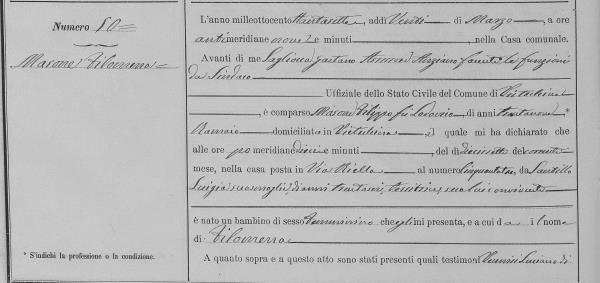 Numero 80
Masone Filomena
* S'indichi la professione o la condizione.
L'anno milleottocento settantasette, addì venti di Marzo, a ore
antimeridiane nove e minuti , nella Casa comunale.
Avanti di me Gaetano Anziano facente le funzioni
da Sindaco
Uffiziale dello Stato Civile del Comune di
è comparso Masone Filippo fu Lodovico, di anni trentanove *
domiciliato in , il quale mi ha dichiarato che
alle ore pomeridiane dieci e minuti , del dì diecisette del corrente
mese, nella casa posta in Via al numero cinquantatre, da Santillo
Luigia sua moglie, di anni , tessitrice, sua convivente
è nato un bambino di sesso femminino che egli mi presenta, e a cui dà il nome
di Filomena
A quanto sopra e a questo atto sono stati presenti quali testimoni Luciano di